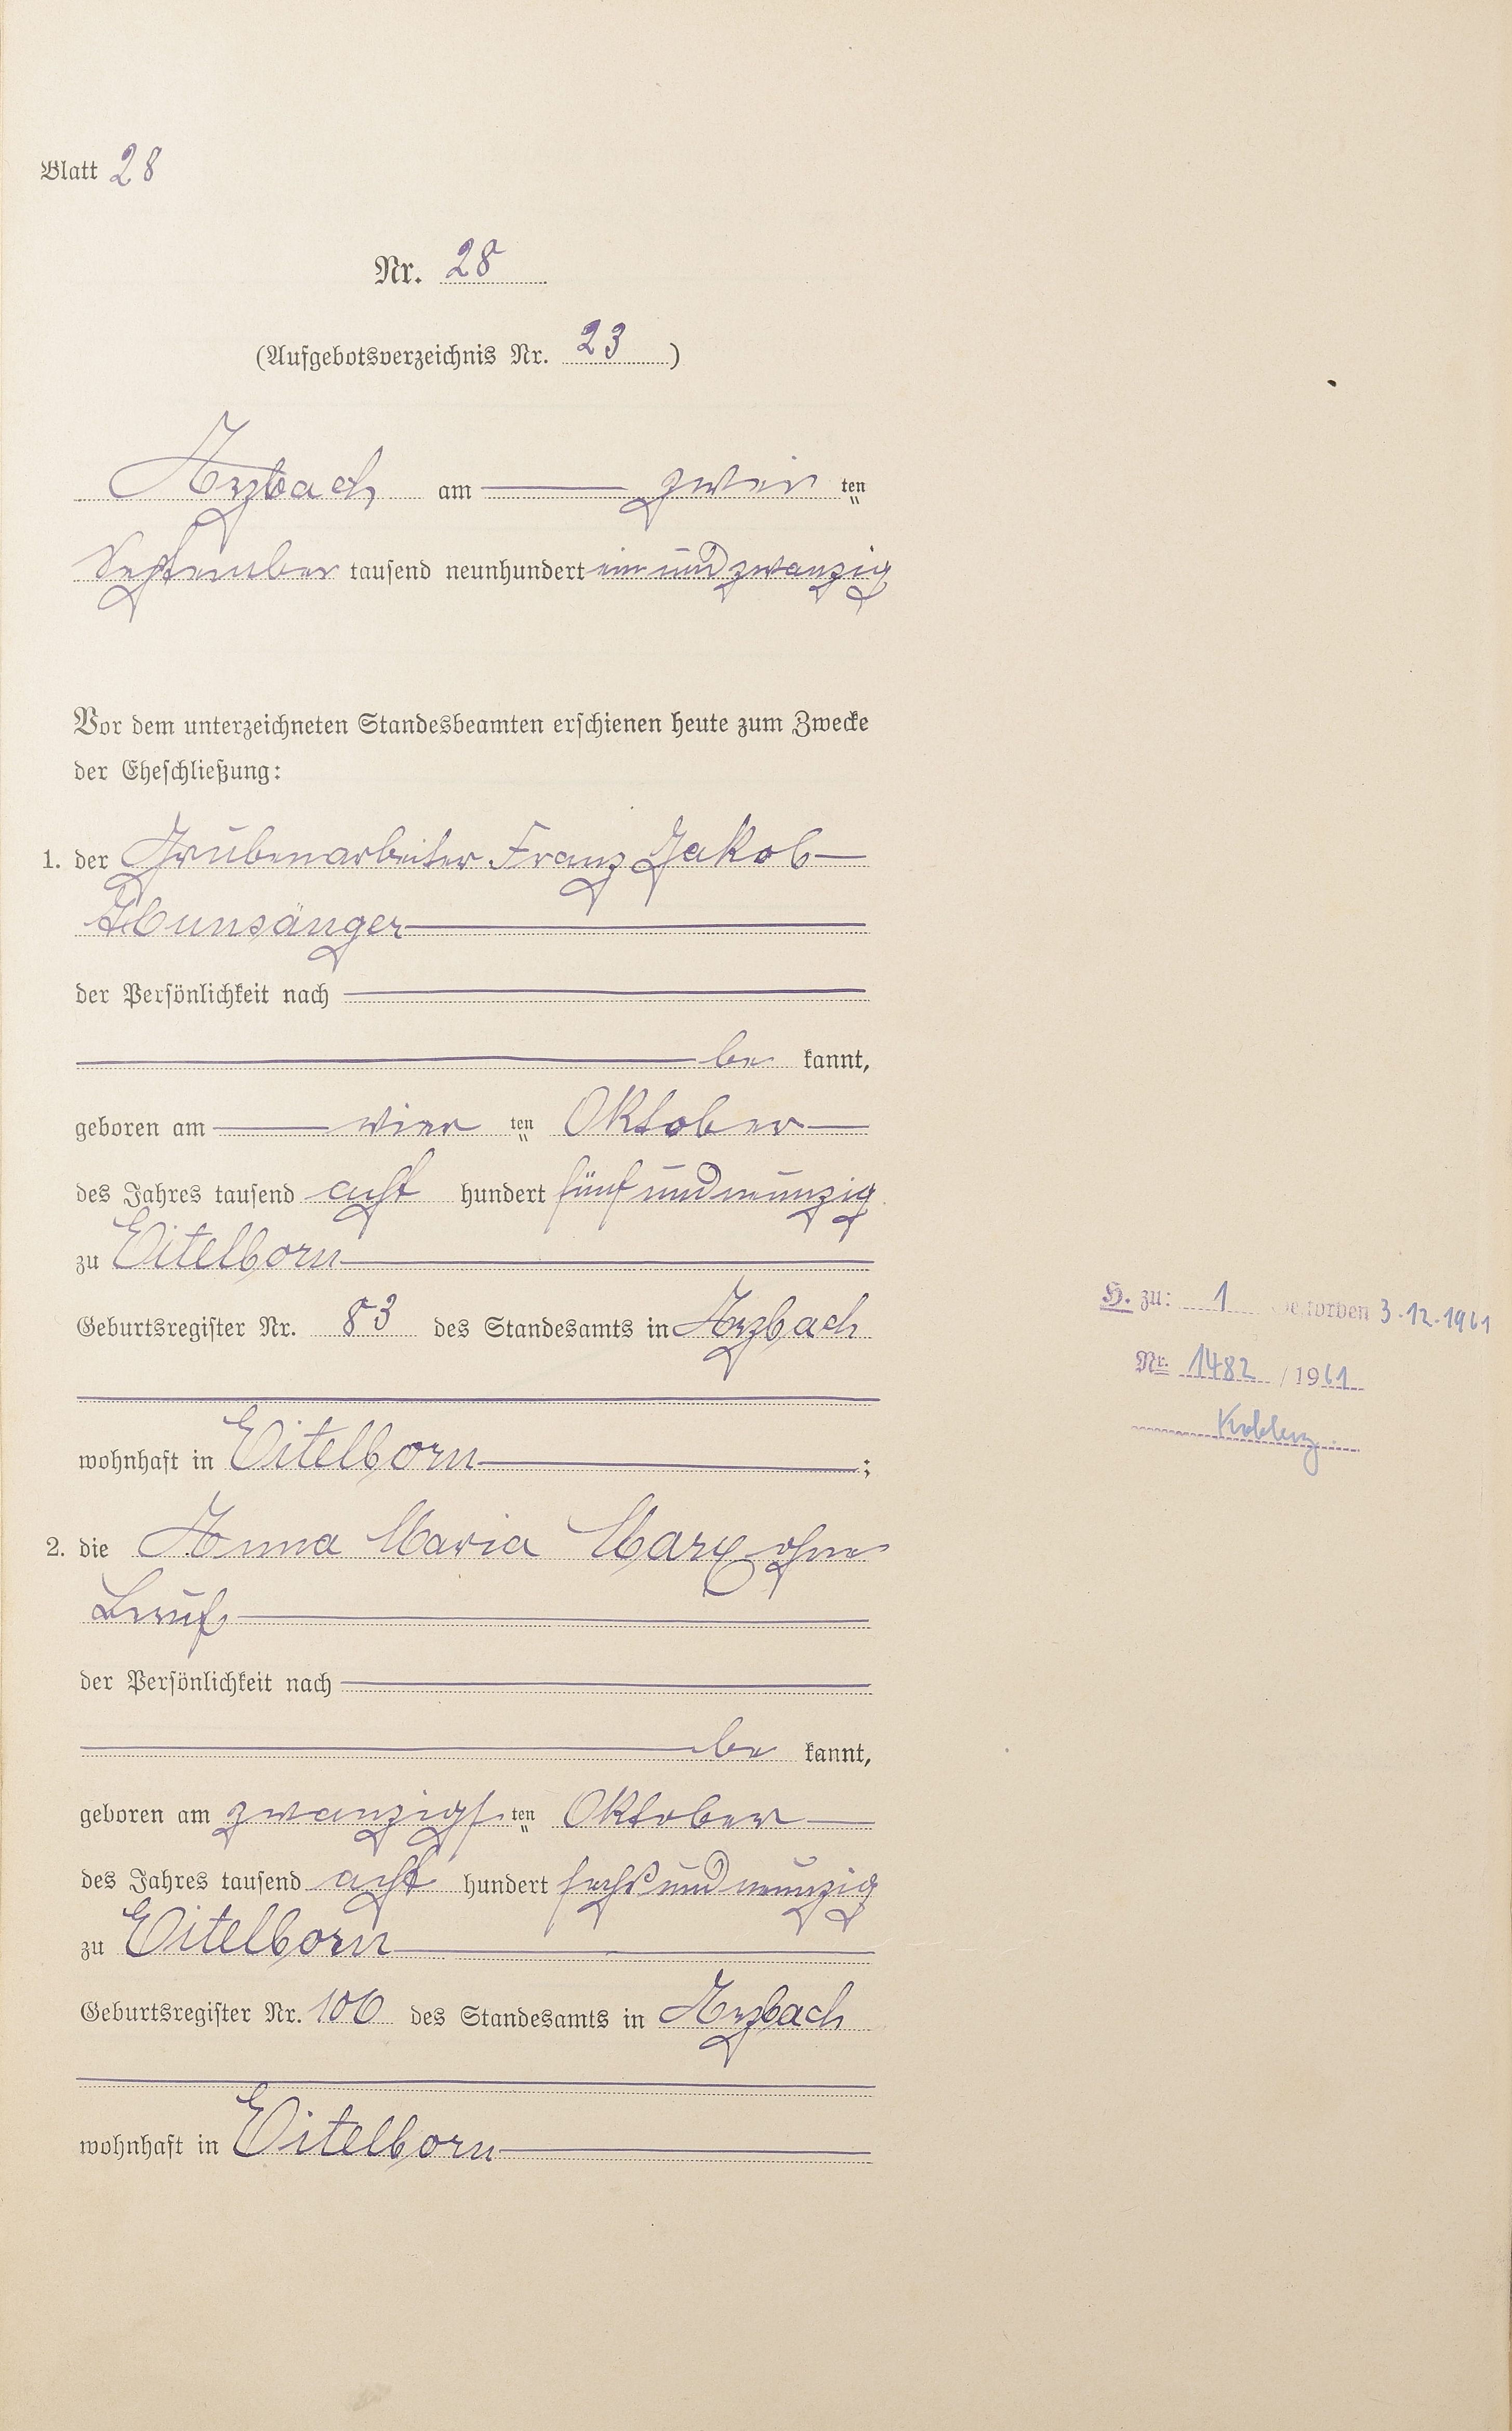 Blatt 28
Nr. 28
(Aufgebotsverzeichnis Nr. 23)
Arzbach am zwei ten
September tausend neunhundert ein und zwanzig
Vor dem unterzeichneten Standesbeamten erschienen heute zum Zwecke
der Eheschließung:
1. der Grubenarbeiter Franz Jakob
Hunsänger
der Persönlichkeit nach
be kannt,
geboren am vier ten Oktober
des Jahres tausend acht hundert fünf und neunzig
zu Eitelborn
Geburtsregister Nr. 83 des Standesamts in Arzbach
H. zu: 1 Gestorben 3.12.1961
Nr. 1482 / 1961
Koblenz.
wohnhaft in Eitelborn ;
2. die Anna Maria Marx ohne
Beruf
der Persönlichkeit nach
be kannt,
geboren am zwanzigs ten Oktober
des Jahres tausend acht hundert sechs und neunzig
zu Eitelborn
Geburtsregister Nr. 106 des Standesamts in Arzbach
wohnhaft in Eitelborn